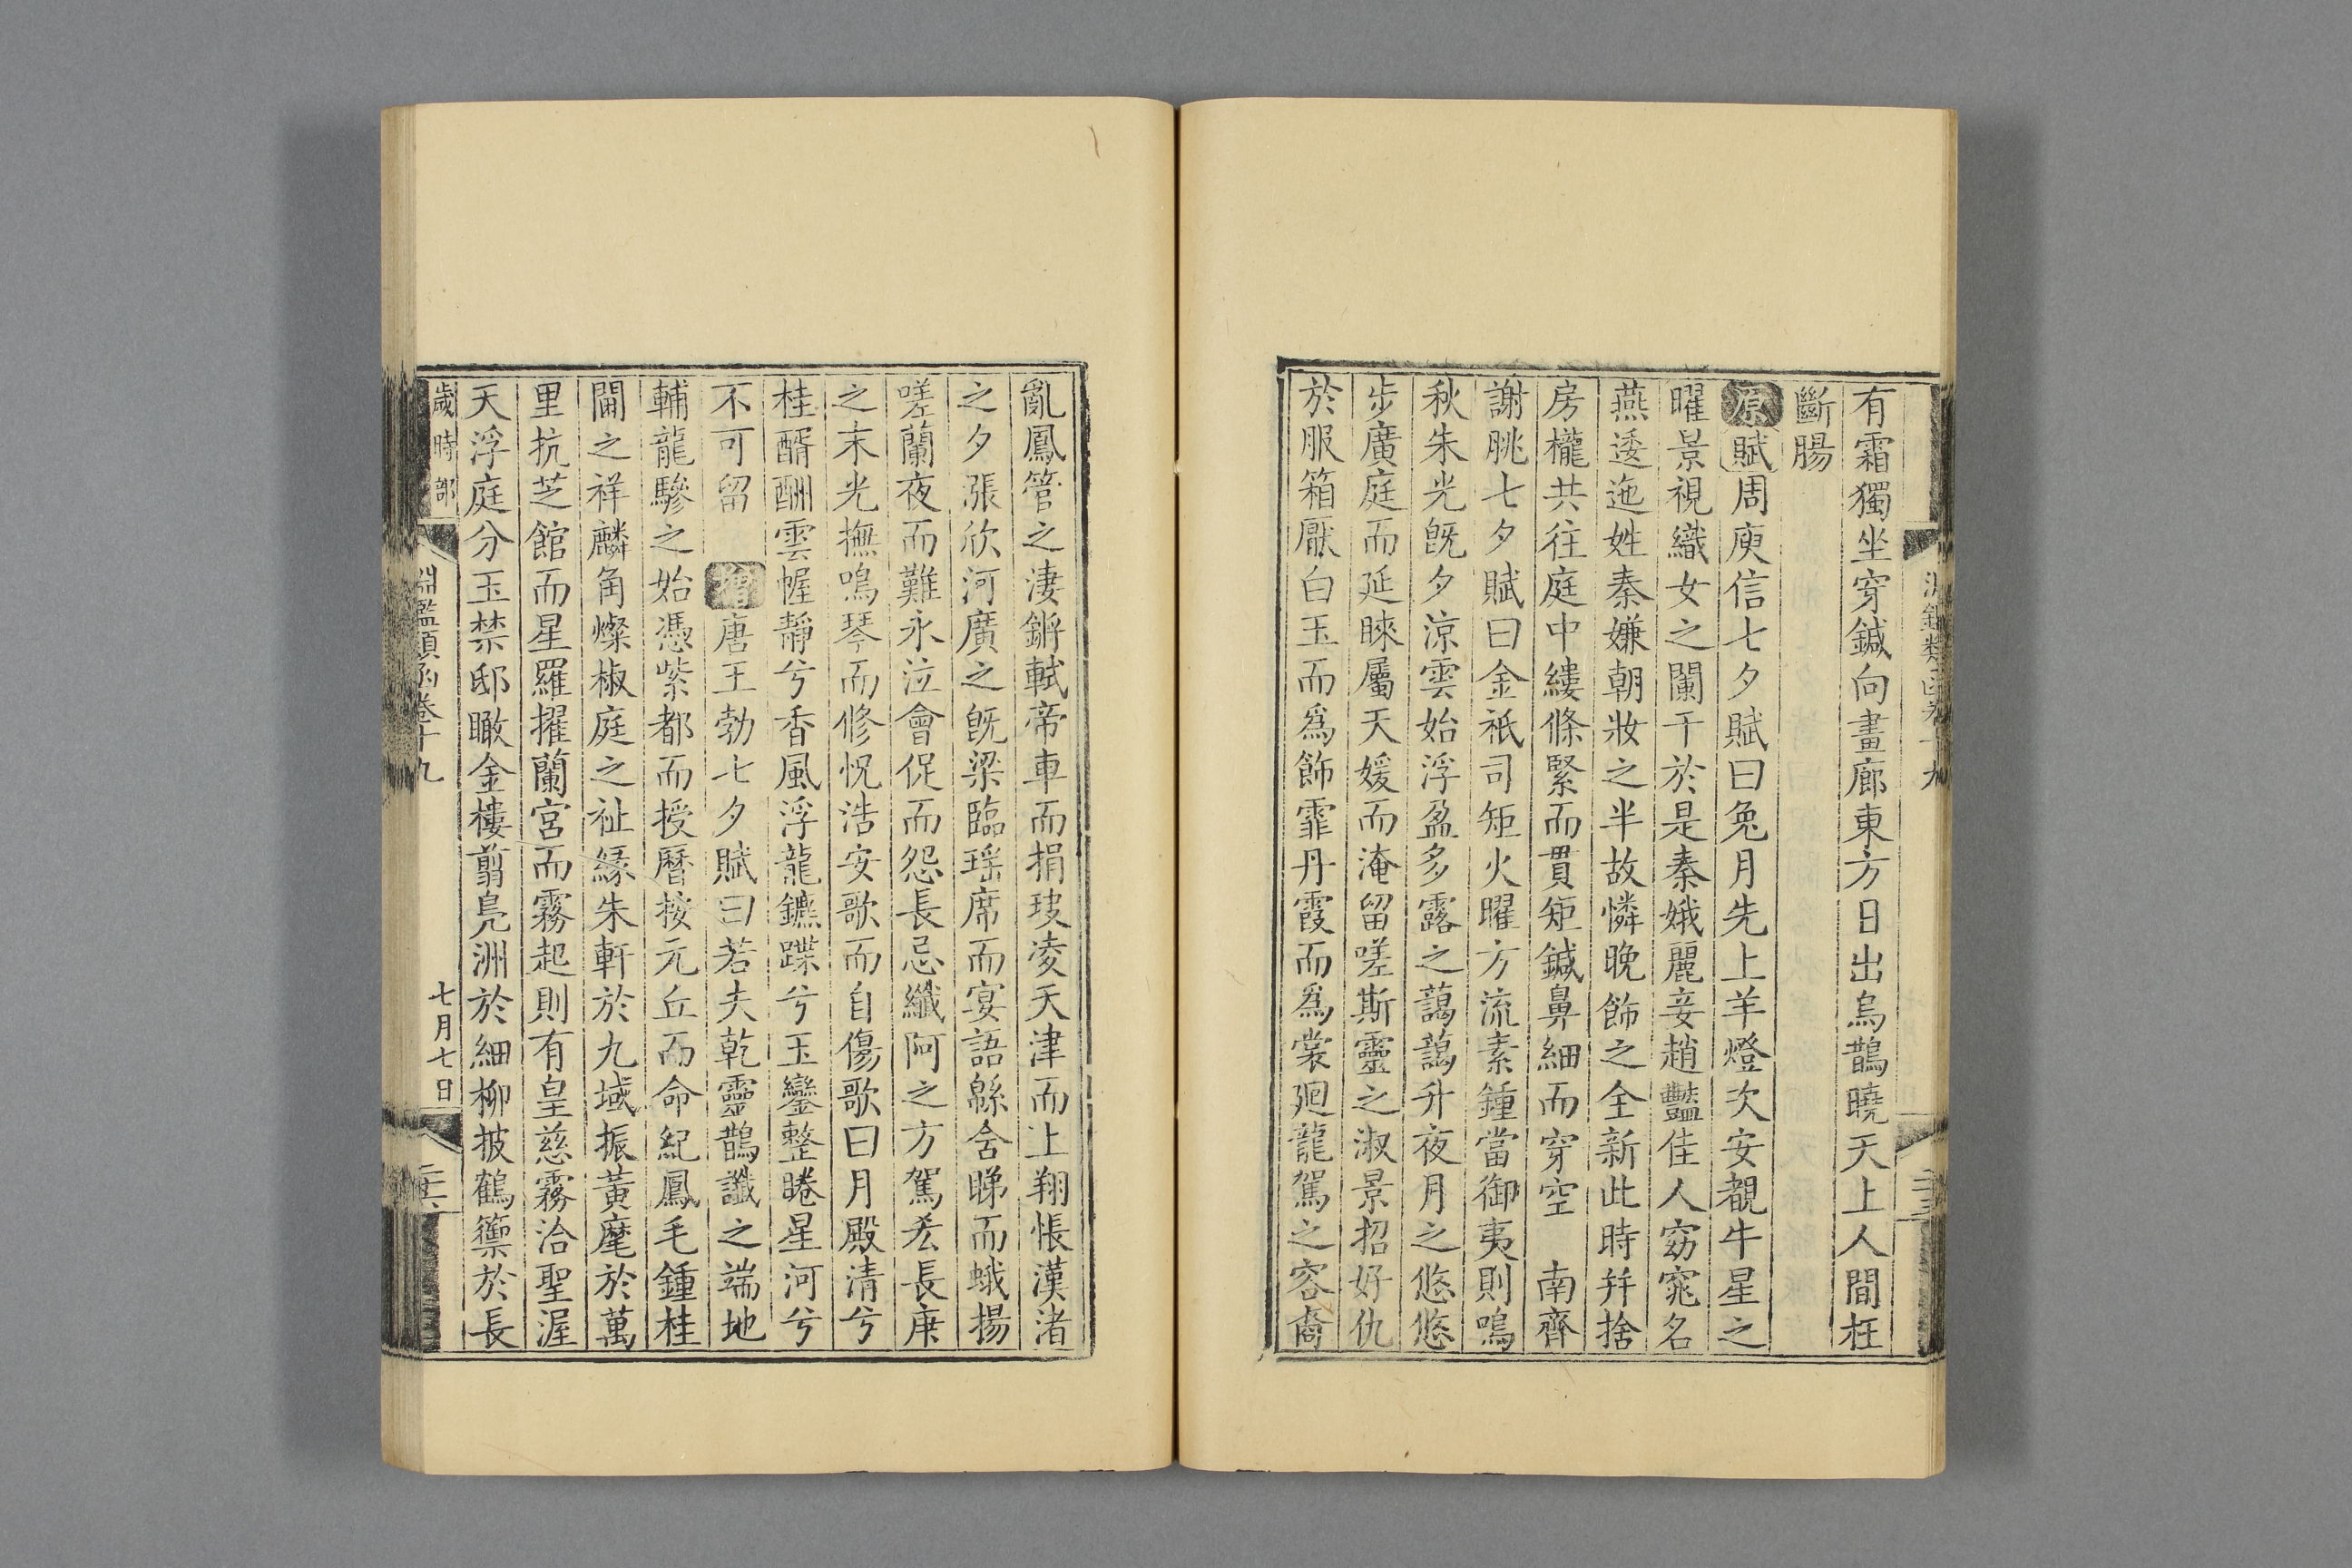 淵鑑類函卷十九
有霜獨坐穿鍼向畫廊東方日出烏鵲曉天上人間枉
斷腸
原賦周庾信七夕賦曰兔月先上羊燈次安覩牛星之
曜景視織女之闌干於是秦娥麗妾趙豔佳人窈窕名
燕逶迤姓秦嫌朝妝之半故憐晚飾之全新此時幷捨
房櫳共往庭中縷條緊而貫矩鍼鼻細而穿空　南齊
謝朓七夕賦曰金祇司矩火曜方流素鍾當御夷則鳴
秋朱光旣夕涼雲始浮盈多露之藹藹升夜月之悠悠
步廣庭而延睞屬天媛而淹留嗟斯靈之淑景招好仇
於服箱厭白玉而爲飾霏丹霞而爲裳廻龍駕之容裔
亂鳳管之淒鏘軾帝車而捐玦凌天津而上翔悵漢渚
之夕漲欣河廣之旣梁臨瑶席而宴語緜含睇而蛾揚
嗟蘭夜而難永泣會促而怨長忌纖阿之方駕忩長庚
之末光撫鳴琴而修怳浩安歌而自傷歌曰月殿清兮
桂醑酬雲幄靜兮香風浮龍鑣蹀兮玉鑾整睠星河兮
不可留　增唐王勃七夕賦曰若夫乾靈鵲讖之端地
輔龍驂之始憑紫都而授曆按元丘而命紀鳳毛鍾桂
閫之祥麟角燦椒庭之祉緣朱軒於九域振黃麾於萬
里抗芝館而星羅擢蘭宮而霧起則有皇慈霧洽聖渥
天浮庭分玉禁邸瞰金樓翦鳧洲於細柳披鶴籞於長
歲時部　淵鑑類函卷十九　七月七日